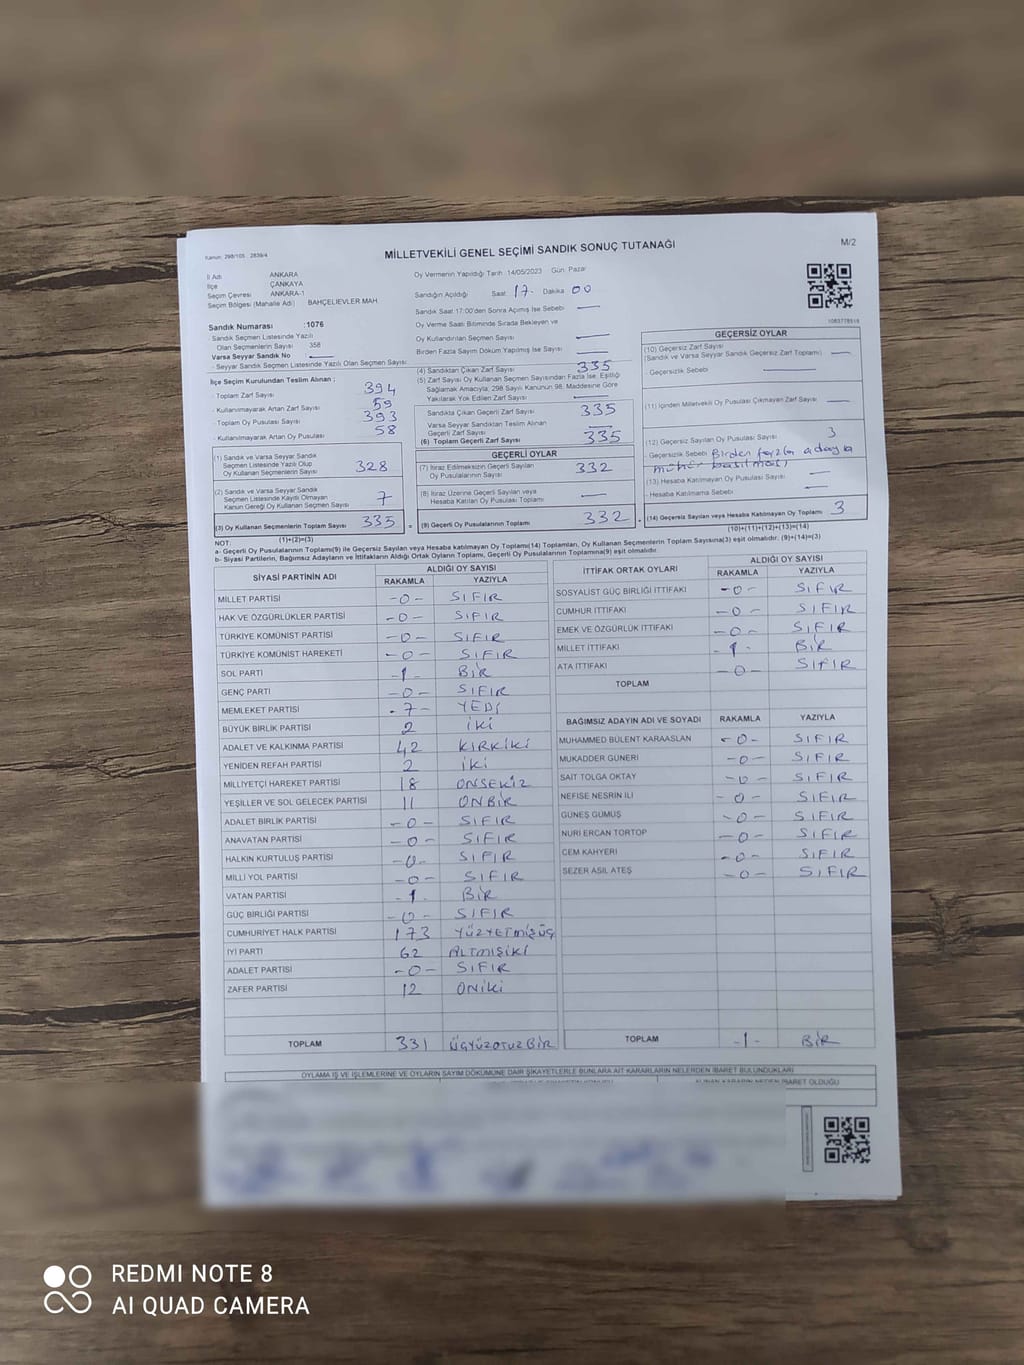 Kanun: 298/105 : 2839/4
MİLLETVEKİLİ GENEL SEÇİMİ SANDIK SONUÇ TUTANAĞI
M/2
İl Adı ANKARA
İlçe ÇANKAYA
Seçim Çevresi ANKARA-1
Seçim Bölgesi (Mahalle Adı) BAHÇELİEVLER MAH.
Oy Vermenin Yapıldığı Tarih :14/05/2023 Gün: Pazar
Sandığın Açıldığı Saat: 17. Dakika 00
Sandık Saat 17:00'den Sonra Açımış İse Sebebi —
Oy Verme Saati Bitiminde Sırada Bekleyen ve
Oy Kullandırılan Seçmen Sayısı —
Birden Fazla Sayım Döküm Yapılmış İse Sayısı —
1083778518
Sandık Numarası :1076
- Sandık Seçmen Listesinde Yazılı
Olan Seçmenlerin Sayısı 358
Varsa Seyyar Sandık No : —
- Seyyar Sandık Seçmen Listesinde Yazılı Olan Seçmen Sayısı
İlçe Seçim Kurulundan Teslim Alınan ;
- Toplam Zarf Sayısı 394
- Kullanılmayarak Artan Zarf Sayısı 59
- Toplam Oy Pusulası Sayısı 393
- Kullanılmayarak Artan Oy Pusulası 58
(1) Sandık ve Varsa Seyyar Sandık
Seçmen Listesinde Yazılı Olup
Oy Kullanan Seçmenlerin Sayısı 328
(2) Sandık ve Varsa Seyyar Sandık
Seçmen Listesinde Kayıtlı Olmayan
Kanun Gereği Oy Kullanan Seçmen Sayısı 7
(3) Oy Kullanan Seçmenlerin Toplam Sayısı 335 =
(1)+(2)=(3)
(4) Sandıktan Çıkan Zarf Sayısı 335
(5) Zarf Sayısı Oy Kullanan Seçmen Sayısından Fazla İse, Eşitliği
Sağlamak Amacıyla, 298 Sayılı Kanunun 98. Maddesine Göre
Yakılarak Yok Edilen Zarf Sayısı —
Sandıkta Çıkan Geçerli Zarf Sayısı 335
Varsa Seyyar Sandıktan Teslim Alınan
Geçerli Zarf Sayısı —
(6) Toplam Geçerli Zarf Sayısı 335
GEÇERLİ OYLAR
(7) İtiraz Edilmeksizin Geçerli Sayılan
Oy Pusulalarının Sayısı 332
(8) İtiraz Üzerine Geçerli Sayılan veya
Hesaba Katılan Oy Pusulası Toplamı —
(9) Geçerli Oy Pusulalarının Toplamı 332 +
GEÇERSİZ OYLAR
(10) Geçersiz Zarf Sayısı
(Sandık ve Varsa Seyyar Sandık Geçersiz Zarf Toplamı) —
- Geçersizlik Sebebi —
(11) İçinden Milletvekili Oy Pusulası Çıkmayan Zarf Sayısı —
(12) Geçersiz Sayılan Oy Pusulası Sayısı 3
- Geçersizlik Sebebi Birden fazla adaya
mühür basılması
(13) Hesaba Katılmayan Oy Pusulası Sayısı —
- Hesaba Katılmama Sebebi —
(14) Geçersiz Sayılan veya Hesaba Katılmayan Oy Toplamı 3
(10)+(11)+(12)+(13)=(14)
NOT:
a- Geçerli Oy Pusulalarının Toplamı(9) ile Geçersiz Sayılan veya Hesaba katılmayan Oy Toplamı(14) Toplamları, Oy Kullanan Seçmenlerin Toplam Sayısına(3) eşit olmalıdır. (9)+(14)=(3)
b- Siyasi Partilerin, Bağımsız Adayların ve İttifakların Aldığı Ortak Oyların Toplamı, Geçerli Oy Pusulalarının Toplamına(9) eşit olmalıdır.
SİYASİ PARTİNİN ADI ALDIĞI OY SAYISI
RAKAMLA YAZIYLA
MİLLET PARTİSİ -0- SIFIR
HAK VE ÖZGÜRLÜKLER PARTİSİ -0- SIFIR
TÜRKİYE KOMÜNİST PARTİSİ -0- SIFIR
TÜRKİYE KOMÜNİST HAREKETİ -0- SIFIR
SOL PARTİ -1- BİR
GENÇ PARTİ -0- SIFIR
MEMLEKET PARTİSİ -7- YEDİ
BÜYÜK BİRLİK PARTİSİ 2 İKİ
ADALET VE KALKINMA PARTİSİ 42 KIRKİKİ
YENİDEN REFAH PARTİSİ 2 İKİ
MİLLİYETÇİ HAREKET PARTİSİ 18 ONSEKİZ
YEŞİLLER VE SOL GELECEK PARTİSİ 11 ONBİR
ADALET BİRLİK PARTİSİ -0- SIFIR
ANAVATAN PARTİSİ -0- SIFIR
HALKIN KURTULUŞ PARTİSİ -0- SIFIR
MİLLİ YOL PARTİSİ -0- SIFIR
VATAN PARTİSİ -1- BİR
GÜÇ BİRLİĞİ PARTİSİ -0- SIFIR
CUMHURİYET HALK PARTİSİ 173 YÜZYETMİŞÜÇ
İYİ PARTİ 62 ALTMIŞİKİ
ADALET PARTİSİ -0- SIFIR
ZAFER PARTİSİ 12 ONİKİ
TOPLAM 331 ÜÇYÜZOTUZBİR
İTTİFAK ORTAK OYLARI ALDIĞI OY SAYISI
RAKAMLA YAZIYLA
SOSYALİST GÜÇ BİRLİĞİ İTTİFAKI -0- SIFIR
CUMHUR İTTİFAKI -0- SIFIR
EMEK VE ÖZGÜRLÜK İTTİFAKI -0- SIFIR
MİLLET İTTİFAKI -1- BİR
ATA İTTİFAKI -0- SIFIR
TOPLAM
BAĞIMSIZ ADAYIN ADI VE SOYADI RAKAMLA YAZIYLA
MUHAMMED BÜLENT KARAASLAN -0- SIFIR
MUKADDER GÜNERİ -0- SIFIR
SAİT TOLGA OKTAY -0- SIFIR
NEFİSE NESRİN İLİ -0- SIFIR
GÜNEŞ GÜMÜŞ -0- SIFIR
NURİ ERCAN TORTOP -0- SIFIR
CEM KAHYERİ -0- SIFIR
SEZER ASİL ATEŞ -0- SIFIR
TOPLAM -1- BİR
OYLAMA İŞ VE İŞLEMLERİNE VE OYLARIN SAYIM DÖKÜMÜNE DAİR ŞİKAYETLERLE BUNLARA AİT KARARLARIN NELERDEN İBARET BULUNDUKLARI
ALINAN KARARIN NEDEN İBARET OLDUĞU
REDMI NOTE 8
AI QUAD CAMERA